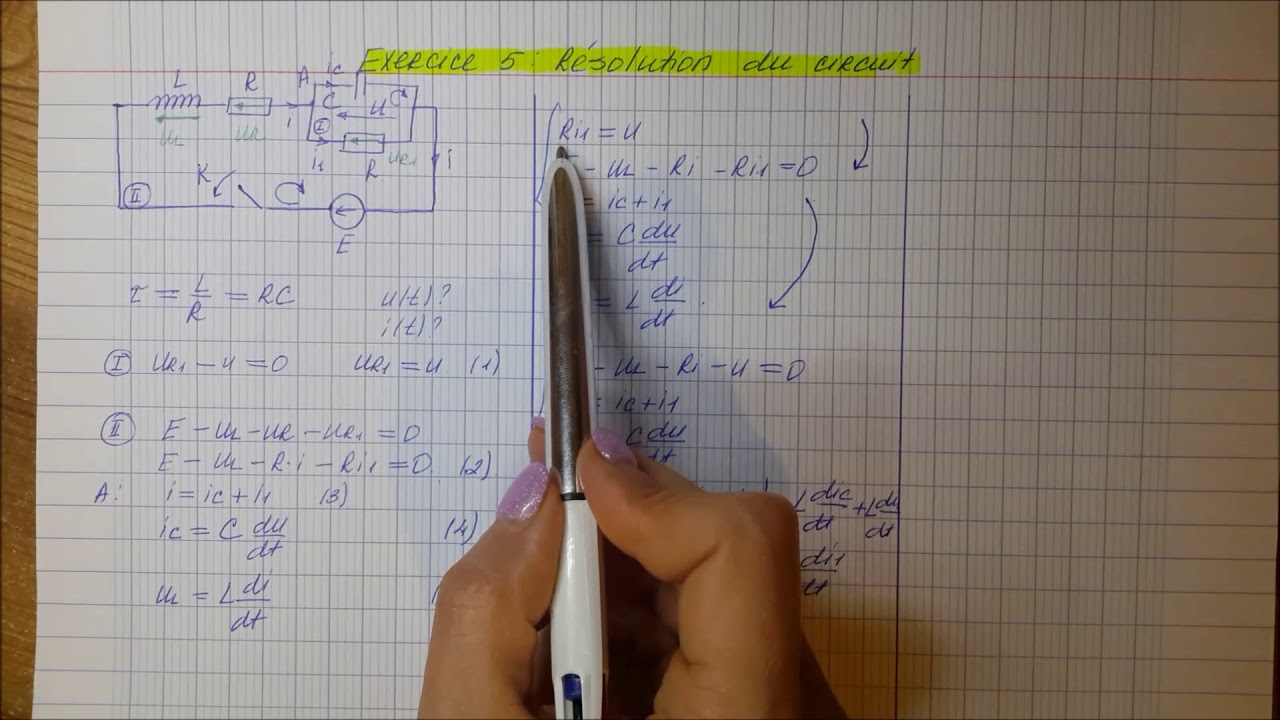 Exercice 5 : Résolution du circuit
L R A ic C u
uL uR i I i1 R uR1 i
II K E
τ = L/R = RC u(t)?
i(t)?
I uR1 - u = 0 uR1 = u (1)
II E - uL - uR - uR1 = 0
E - uL - R·i - Ri1 = 0. (2)
A: i = ic + i1 (3)
ic = C du/dt (4)
uL = L di/dt
Ri1 = u
- uL - Ri - Ri1 = 0
= ic + i1
= C du/dt
= L di/dt.
- uL - Ri - u = 0
= ic + i1
C du/dt
L dic/dt + L di
dt
di1
dt